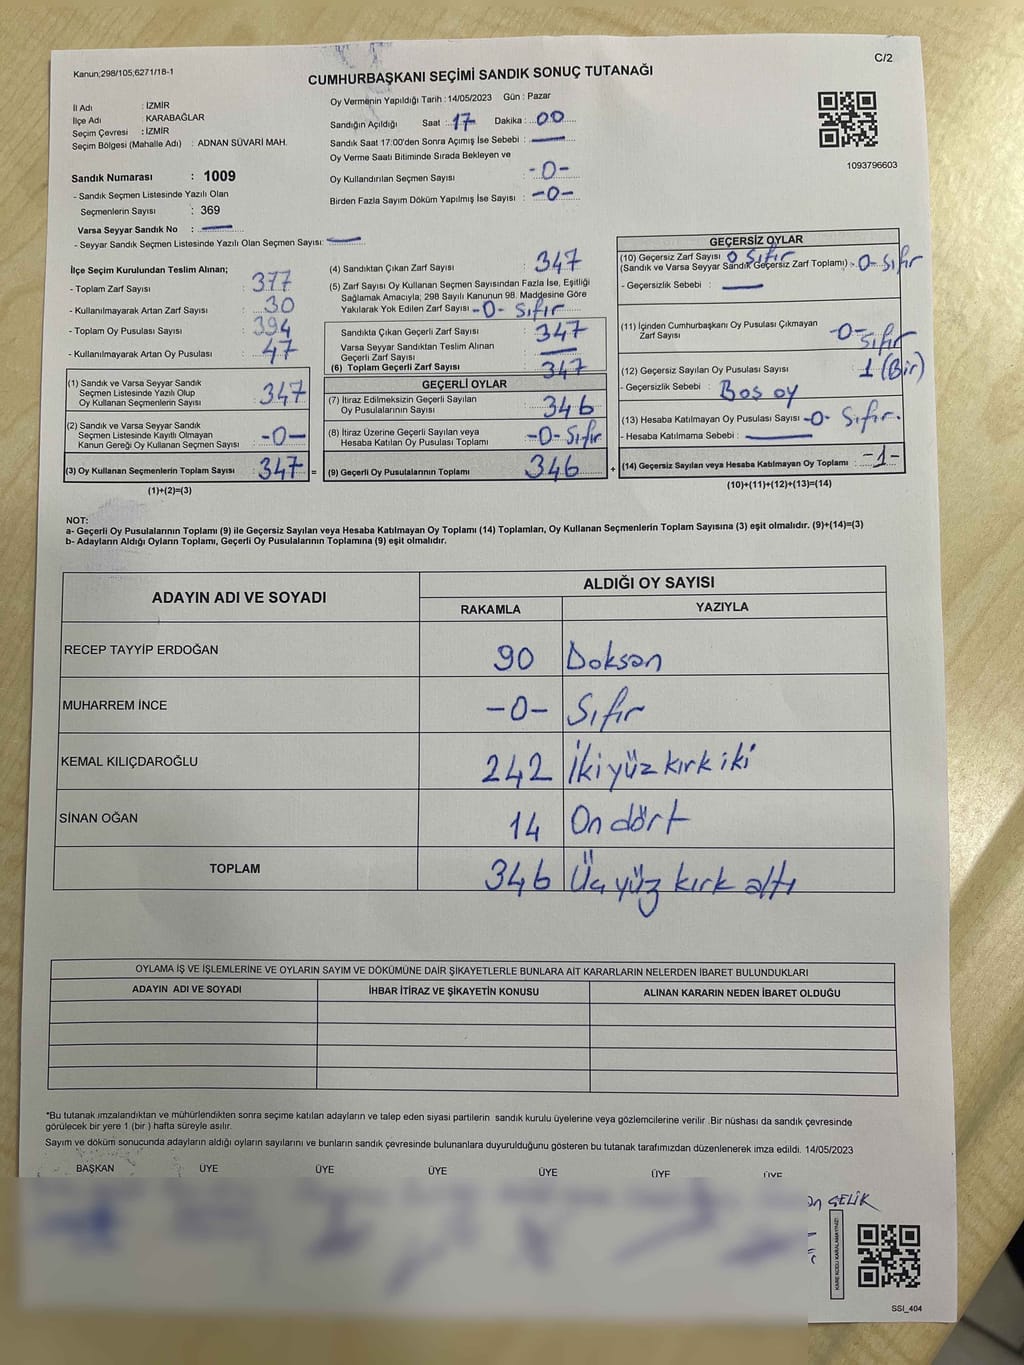 Kanun;298/105;6271/18-1
C/2
CUMHURBAŞKANI SEÇİMİ SANDIK SONUÇ TUTANAĞI
İl Adı : İZMİR
İlçe Adı : KARABAĞLAR
Seçim Çevresi : İZMİR
Seçim Bölgesi (Mahalle Adı) : ADNAN SÜVARİ MAH.
Sandık Numarası : 1009
- Sandık Seçmen Listesinde Yazılı Olan
Seçmenlerin Sayısı : 369
Varsa Seyyar Sandık No :
- Seyyar Sandık Seçmen Listesinde Yazılı Olan Seçmen Sayısı:
Oy Vermenin Yapıldığı Tarih : 14/05/2023 Gün : Pazar
Sandığın Açıldığı Saat : 17 Dakika : 00
Sandık Saat 17:00'den Sonra Açımış İse Sebebi :
Oy Verme Saati Bitiminde Sırada Bekleyen ve
Oy Kullandırılan Seçmen Sayısı : -0-
Birden Fazla Sayım Döküm Yapılmış İse Sayısı : -0-
1093796603
İlçe Seçim Kurulundan Teslim Alınan;
- Toplam Zarf Sayısı : 377
- Kullanılmayarak Artan Zarf Sayısı : 30
- Toplam Oy Pusulası Sayısı : 394
- Kullanılmayarak Artan Oy Pusulası : 47
(1) Sandık ve Varsa Seyyar Sandık
Seçmen Listesinde Yazılı Olup
Oy Kullanan Seçmenlerin Sayısı : 347
(2) Sandık ve Varsa Seyyar Sandık
Seçmen Listesinde Kayıtlı Olmayan
Kanun Gereği Oy Kullanan Seçmen Sayısı : -0-
(3) Oy Kullanan Seçmenlerin Toplam Sayısı : 347 =
(1)+(2)=(3)
(4) Sandıktan Çıkan Zarf Sayısı : 347
(5) Zarf Sayısı Oy Kullanan Seçmen Sayısından Fazla İse, Eşitliği
Sağlamak Amacıyla; 298 Sayılı Kanunun 98. Maddesine Göre
Yakılarak Yok Edilen Zarf Sayısı - 0 - Sıfır
Sandıkta Çıkan Geçerli Zarf Sayısı : 347
Varsa Seyyar Sandıktan Teslim Alınan
Geçerli Zarf Sayısı :
(6) Toplam Geçerli Zarf Sayısı : 347
GEÇERLİ OYLAR
(7) İtiraz Edilmeksizin Geçerli Sayılan
Oy Pusulalarının Sayısı : 346
(8) İtiraz Üzerine Geçerli Sayılan veya
Hesaba Katılan Oy Pusulası Toplamı : -0- Sıfır
(9) Geçerli Oy Pusulalarının Toplamı : 346 +
GEÇERSİZ OYLAR
(10) Geçersiz Zarf Sayısı 0 Sıfır
(Sandık ve Varsa Seyyar Sandık Geçersiz Zarf Toplamı) - 0 - Sıfır
- Geçersizlik Sebebi :
(11) İçinden Cumhurbaşkanı Oy Pusulası Çıkmayan
Zarf Sayısı -0- Sıfır
(12) Geçersiz Sayılan Oy Pusulası Sayısı : 1 (Bir)
- Geçersizlik Sebebi : Boş oy
(13) Hesaba Katılmayan Oy Pusulası Sayısı -0- Sıfır.
- Hesaba Katılmama Sebebi :
(14) Geçersiz Sayılan veya Hesaba Katılmayan Oy Toplamı : -1-
(10)+(11)+(12)+(13)=(14)
NOT:
a- Geçerli Oy Pusulalarının Toplamı (9) ile Geçersiz Sayılan veya Hesaba Katılmayan Oy Toplamı (14) Toplamları, Oy Kullanan Seçmenlerin Toplam Sayısına (3) eşit olmalıdır. (9)+(14)=(3)
b- Adayların Aldığı Oyların Toplamı, Geçerli Oy Pusulalarının Toplamına (9) eşit olmalıdır.
ADAYIN ADI VE SOYADI ALDIĞI OY SAYISI
RAKAMLA YAZIYLA
RECEP TAYYİP ERDOĞAN 90 Doksan
MUHARREM İNCE -0- Sıfır
KEMAL KILIÇDAROĞLU 242 İkiyüz kırk iki
SİNAN OĞAN 14 On dört
TOPLAM 346 Üç yüz kırk altı
OYLAMA İŞ VE İŞLEMLERİNE VE OYLARIN SAYIM VE DÖKÜMÜNE DAİR ŞİKAYETLERLE BUNLARA AİT KARARLARIN NELERDEN İBARET BULUNDUKLARI
ADAYIN ADI VE SOYADI İHBAR İTİRAZ VE ŞİKAYETİN KONUSU ALINAN KARARIN NEDEN İBARET OLDUĞU
*Bu tutanak imzalandıktan ve mühürlendikten sonra seçime katılan adayların ve talep eden siyasi partilerin sandık kurulu üyelerine veya gözlemcilerine verilir .Bir nüshası da sandık çevresinde
görülecek bir yere 1 (bir ) hafta süreyle asılır.
Sayım ve döküm sonucunda adayların aldığı oyların sayılarını ve bunların sandık çevresinde bulunanlara duyurulduğunu gösteren bu tutanak tarafımızdan düzenlenerek imza edildi. 14/05/2023
BAŞKAN ÜYE ÜYE ÜYE ÜYE ÜYE ÜYE
ÇELİK
KARE KODU KARALAMAYINIZ!
SSI_404